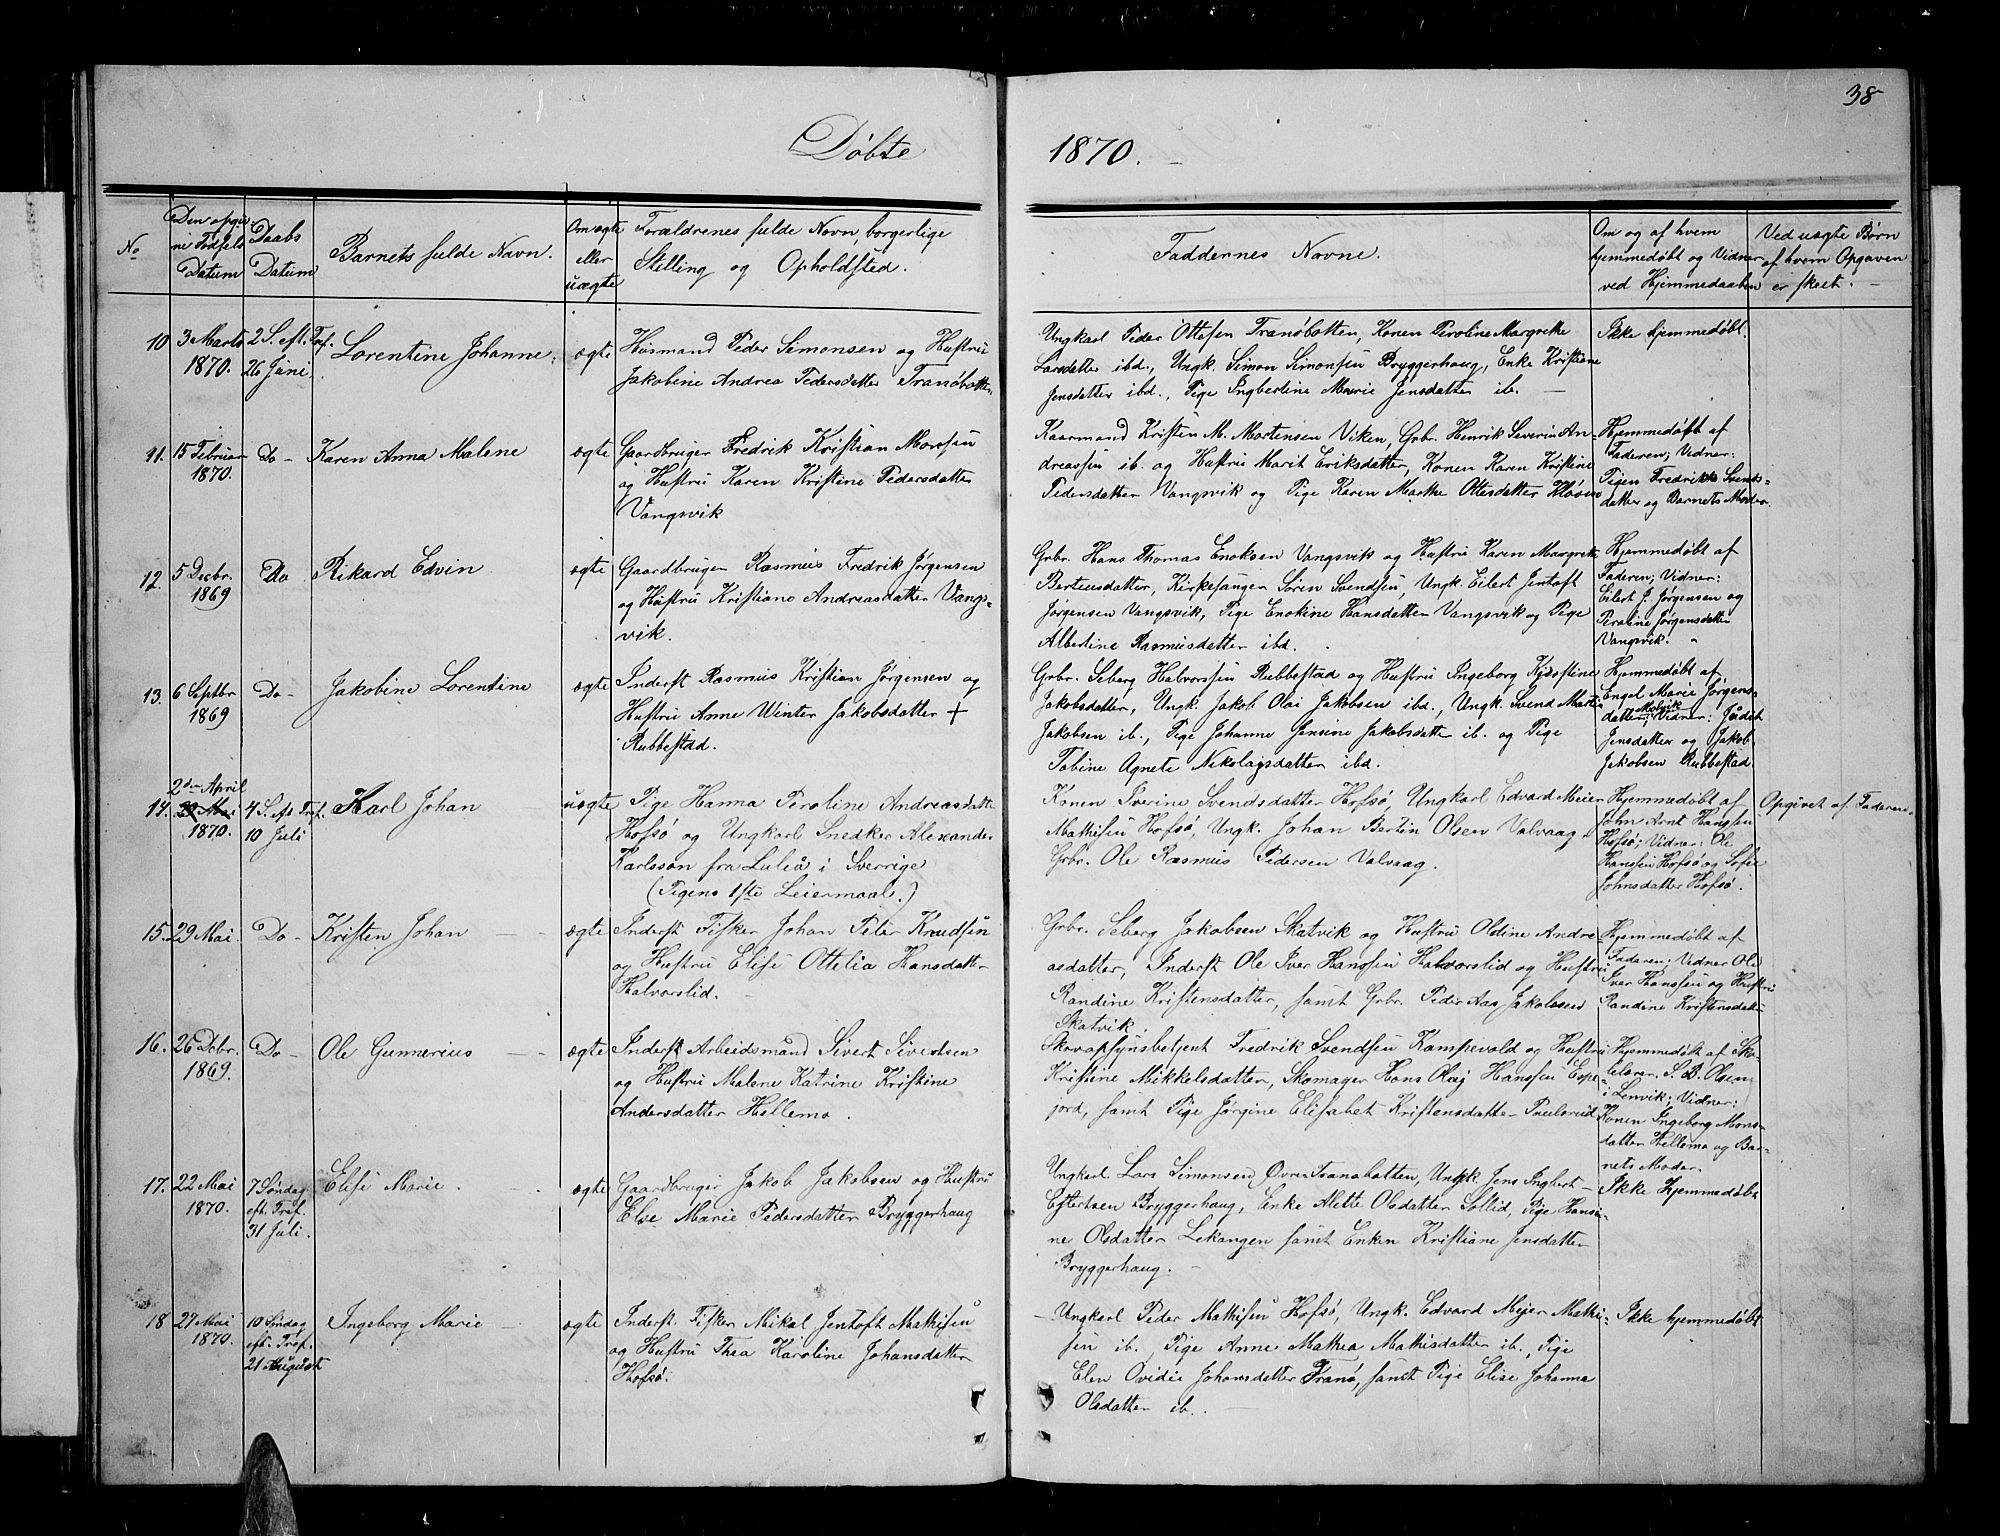 38
Døbte 1870.
No
Den opgiv-
ne Fødsels
Datum
Daabs
Datum
Barnets fulde Navn.
Om ægte
eller
uægte
Forældrenes fulde Navn, borgerlige
Stilling og Opholdssted.
Faddernes Navne.
Om og af hvem
hjemmedøbt og Vidner
ved Hjemmedaaben
Ved uægte Børn
af hvem Opgaven
er skeet.
10
3 Marts
1870.
2 S. eft. Tref.
26 Juni
Lorentine Johanne
ægte
Husmand Peder Simonsen og Hustru
Jakobine Andrea Pedersdatter Tranøbotten
Ungkarl Peder Ottesen Tranøbotten, Konen Peroline Margrethe
Larsdatter ibd., Ungk. Simon Simonsen Bryggerhaug, Enke Kristiane
Jensdatter ibd., Pige Ingbertine Marie Jensdatter ib.
Ikke hjemmedøbt.
11.
15 Februar
1870.
Do
Karen Anna Malene
ægte
Gaardbruger Fredrik Kristian Monsen
og Hustru Karen Kristine Pedersdatter
Vangsvik
Kaarmand Kristen M. Mortensen Viken, Grbr. Henrik Severin An-
dreassen ib. og Hustru Marit Eriksdatter, Konen Karen Kristine
Pedersdatter Vangsvik og Pige Karen Marthe Ottesdatter
Hjemmedøbt af
Faderen; Vidner:
Pigen Fredrikke Svends-
datter og Barnets Moder.
12.
5 Decbr.
1869
Do
Rikard Edvin
ægte
Gaardbruger Rasmus Fredrik Jørgensen
og Hustru Kristiane Andreasdatter Vangs-
vik.
Grbr. Hans Thomas Enoksen Vangsvik og Hustru Karen Margrete
Berteusdatter, Kirkesanger Søren Svendsen, Ungk. Eilert Jentoft
Jørgensen Vangsvik, Pige Enokine Hansdatter Vangsvik og Pige
Albertine Rasmusdatter ibd.
Hjemmedøbt af
Faderen; Vidner:
Eilert J. Jørgensen og
Peroline Jørgensdatter
Vangsvik.
13.
6 Septbr
1869
Do
Jakobine Lorentine
ægte
Inderst Rasmus Kristian Jørgensen og
Hustru Anne Winter Jakobsdatter +
Rubbestad.
Grbr. Seberg Halvorsen Rubbestad og Hustru Ingeborg Kjerstine
Jakobsdatter, Ungk. Jakob Olai Jakobsen ibd., Ungk. Svend Martin
Jakobsen ib., Pige Johanne Jensine Jakobsdatter ib. og Pige
Tobine Agnete Nikolaisdatter ibd.
Hjemmedøbt af
Engel Marie Jørgens-
datter Melvik; Vidner: Judit
Jensdatter og Jakob
Jakobsen Rubbestad.
14.
2den April
1870.
4 S. eft. Tref.
10 Juli
Karl Johan
uægte
Pige Hanna Peroline Andreasdatter
Hofsø og Ungkarl Snedker Alexander
Karlsson fra Luleå i Sverrige
(Pigens 1ste Leiermaal.)
Konen Sverine Svendsdatter Hofsø, Ungkarl Edvard Meier
Mathisen Hofsø, Ungk. Johan Bertin Olsen Valvaag,
Grbr. Ole Rasmus Pedersen Valvaag.
Hjemmedøbt af
John Arnt Hansen
Hofsø; Vidner: Ole
Hansen Hofsø og Sofie
Johnsdatter Hofsø.
Opgivet af Faderen.
15.
29 Mai.
Do
Kristen Johan
ægte
Inderst Fisker Johan Peter Knudsen
og Hustru Elise Ottelia Hansdatter
Halvorslid.
Grbr. Seberg Jakobsen Skatvik og Hustru Oldine Andre-
asdatter, Inderst Ole Iver Hansen Halvorslid og Hustru
Randine Kristensdatter, samt Grbr. Peder Aas Jakobsen
Skatvik.
Hjemmedøbt af
Faderen; Vidner Ole
Iver Hansen og Hustru
Randine Kristensdatter
16.
26 Dcbr.
1869.
Do
Ole Gunnerius
ægte
Inderst Arbeidsmand Sivert Sivertsen
og Hustru Malene Katrine Kristine
Andersdatter Hellemo.
Skovopsynsbetjent Fredrik Svendsen Kampevold og Hustru
Kristine Mikkelsdatter, Skomager Hans Olaj Hansen Espe-
jord, samt Pige Jørgine Elisabet Kristensdatter Paulsrud
Hjemmedøbt af Sko-
lelærer S. B. Olsen
i Lenvik; Vidner:
Konen Ingeborg Mons-
datter Hellemo og Bar-
nets Moder.
17.
22 Mai
1870.
7 Søndag
eft. Tref.
31 Juli.
Elise Marie
ægte
Gaardbruger Jakob Jakobsen og Hustru
Else Marie Pedersdatter Bryggerhaug
Ungkarl Lars Simonsen Øvre Tranøbotten, Ungk. Jens Ingbert
Eftertsen Bryggerhaug, Enke Alette Olsdatter Sollid, Pige Hansi-
ne Olsdatter Lekangen samt Enken Kristiane Jensdatter
Bryggerhaug.
Ikke hjemmedøbt
18
27 Mai
1870.
10 Søndag
eft. Tref.
21 August
Ingeborg Marie
ægte
Inderst Fisker Mikal Jentoft Mathisen
og Hustru Thea Karoline Johansdatter
Hofsø.
Ungkarl Peder Mathisen Hofsø, Ungk. Edvard Mejer Mathi-
sen ib., Pige Anne Mathea Mathisdatter ib., Pige
Elen Ovidie Johansdatter Tranø, samt Pige Elise Johanna
Olsdatter ib.
Ikke hjemmedøbt